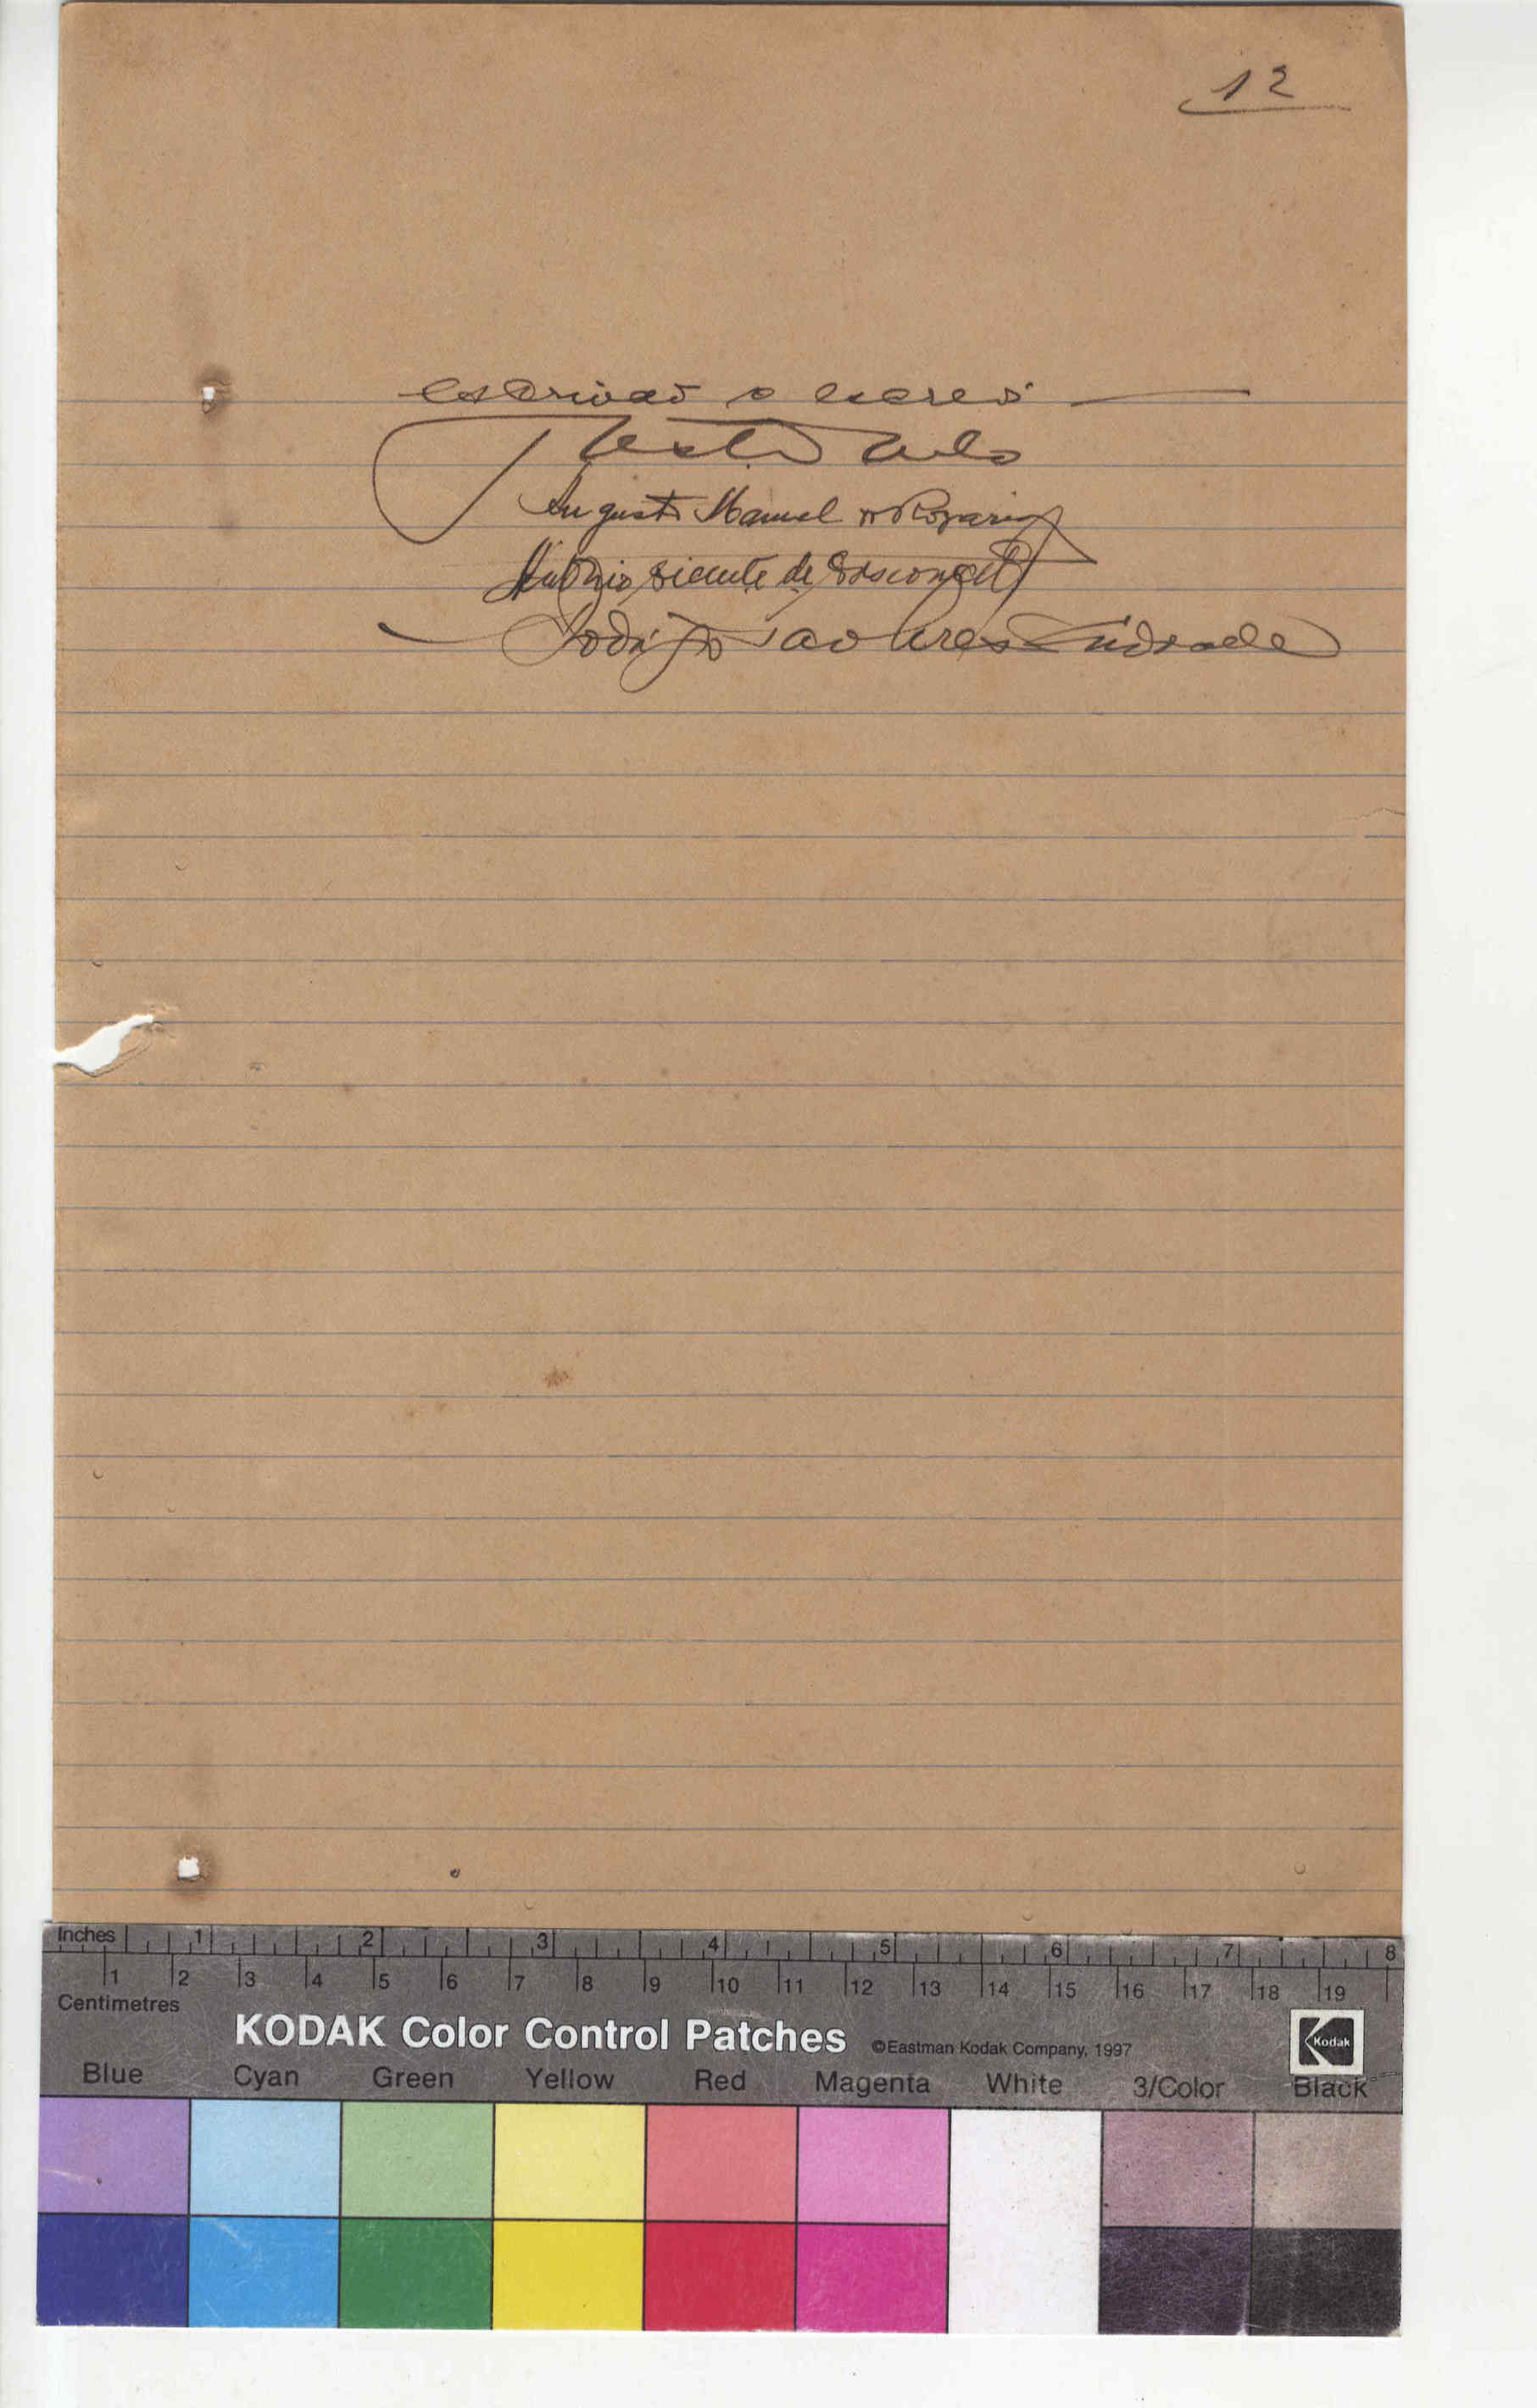 12
escrivão o escrevi
Augusto Manuel do Rozario
Antonio Vicente de Vasconcellos
Rodrigo Tavares Andrade
Inches 1 2 3 4 5 6 7 8
1 2 3 4 5 6 7 8 9 10 11 12 13 14 15 16 17 18 19
Centimetres
KODAK Color Control Patches ©Eastman Kodak Company, 1997 Kodak
Blue Cyan Green Yellow Red Magenta White 3/Color Black